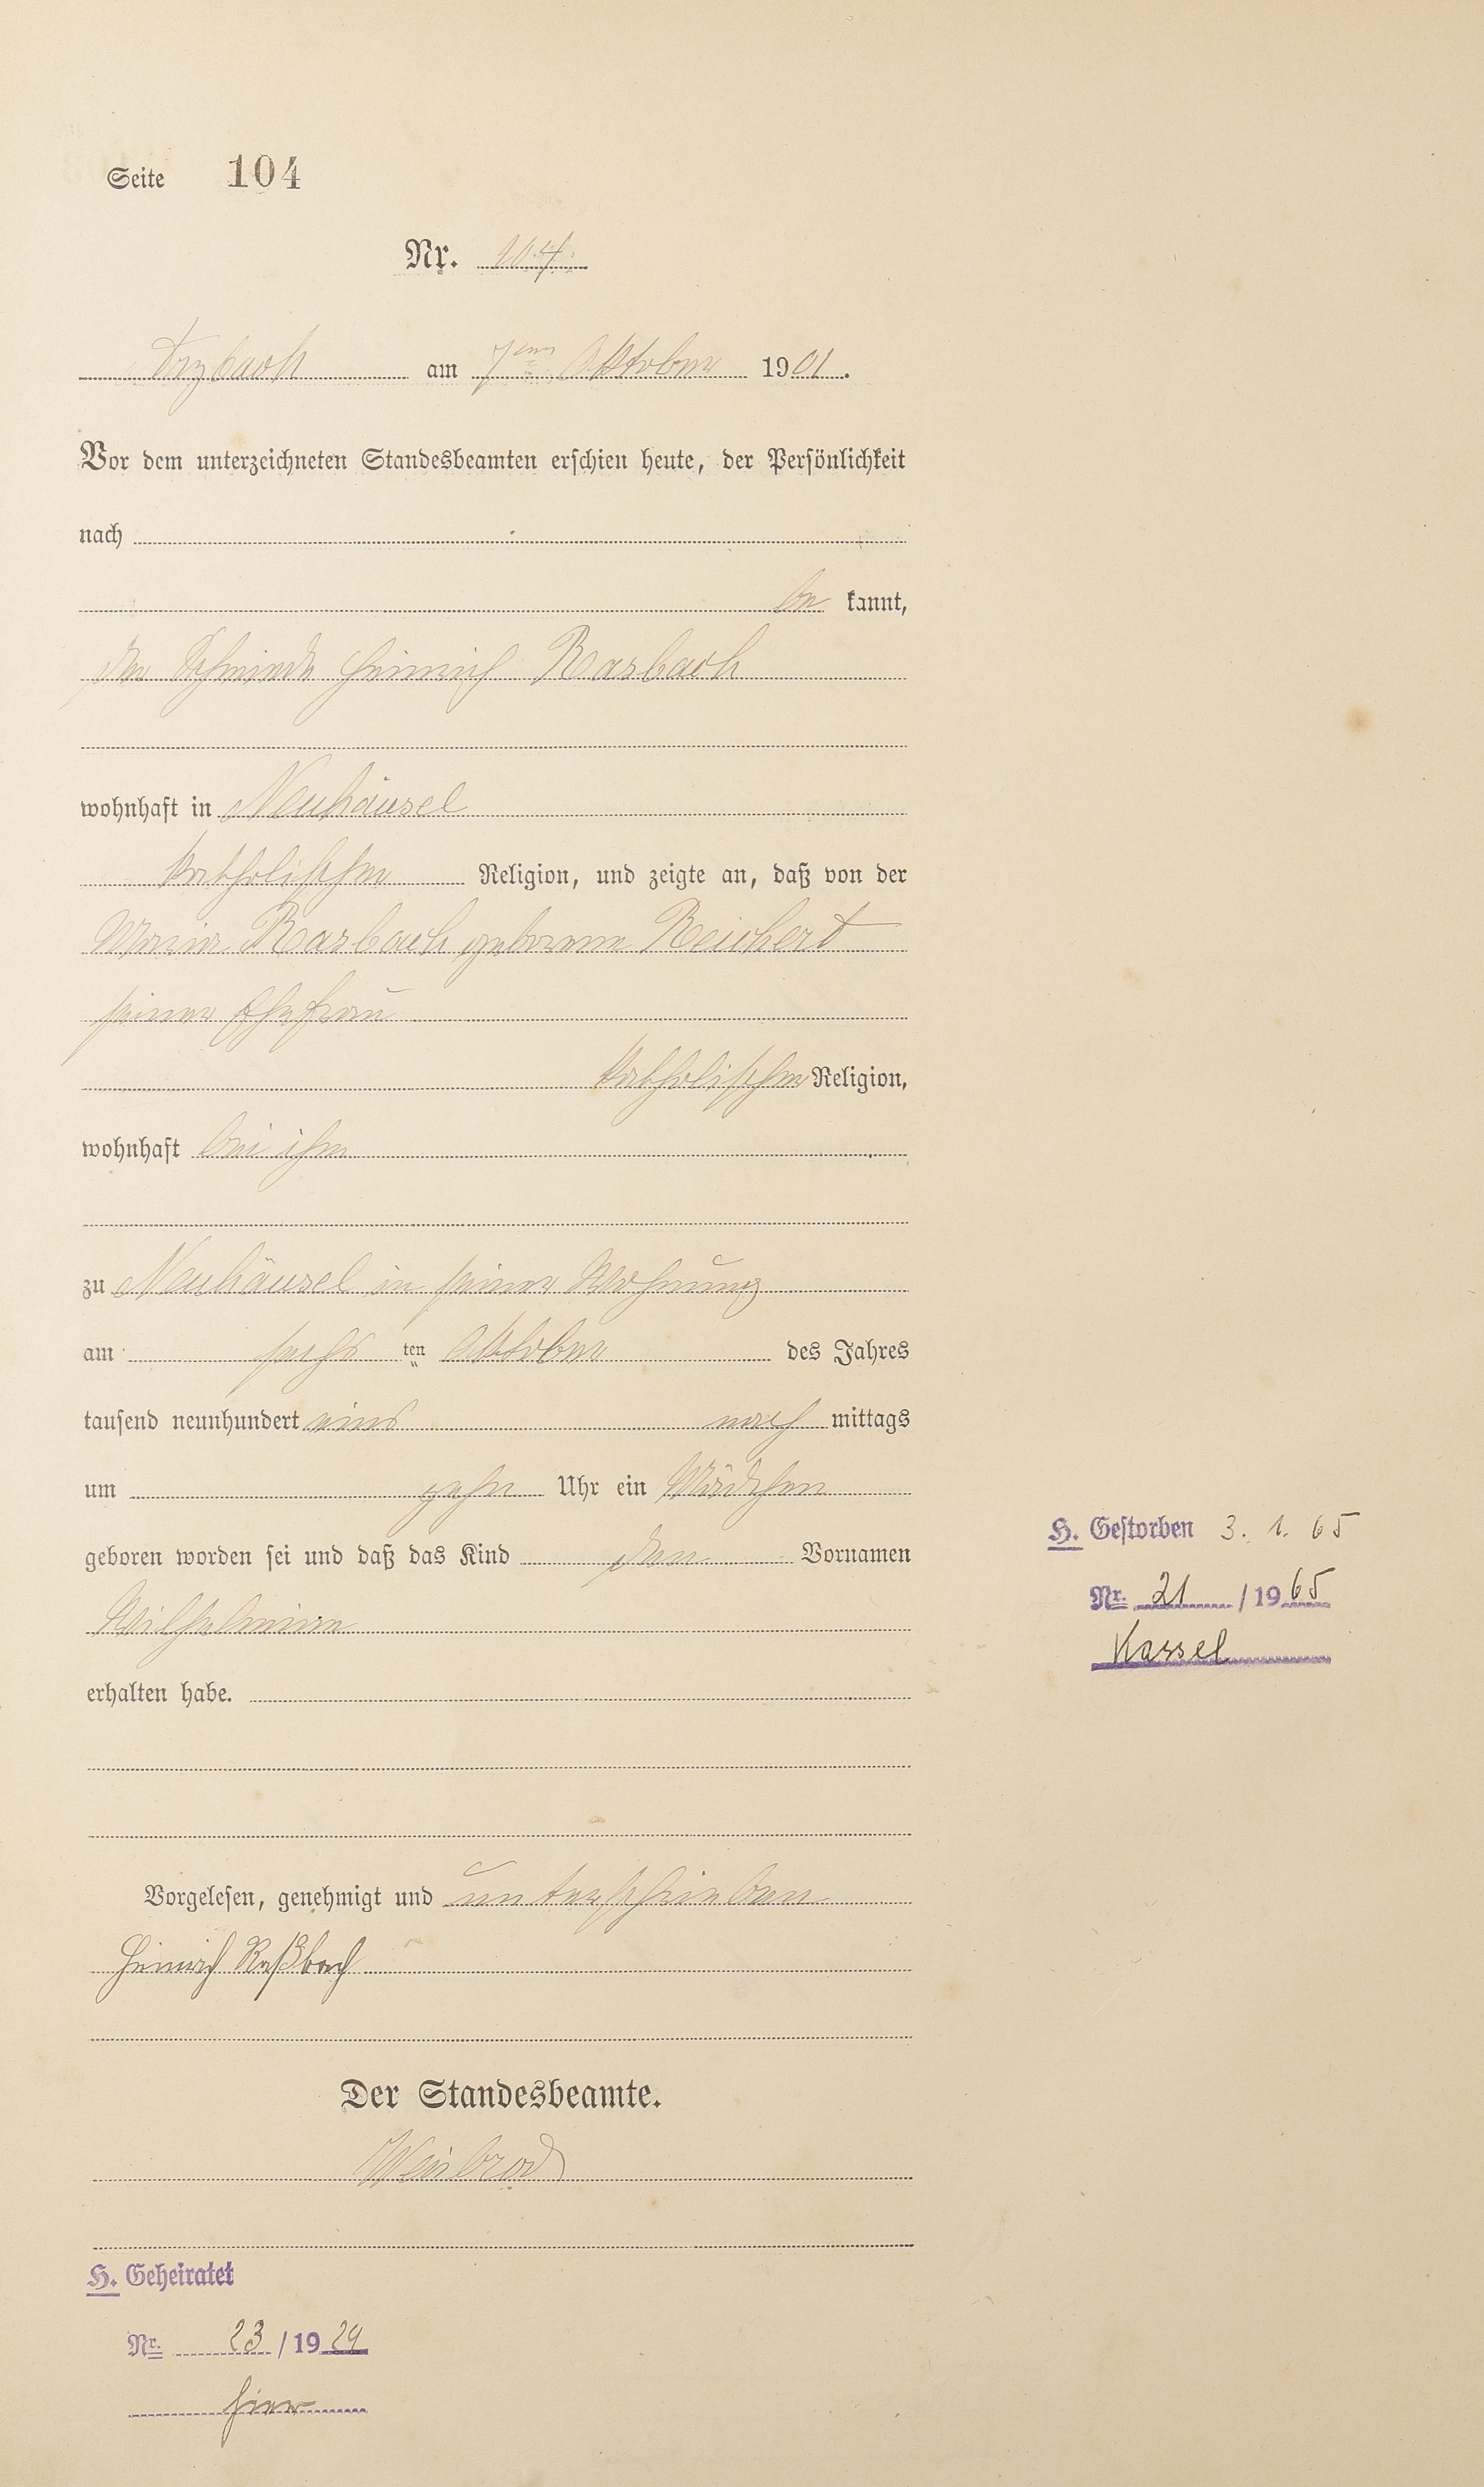 Seite 104
Nr. 104
Arzbach am 7ten Oktober 1901.
Vor dem unterzeichneten Standesbeamten erschien heute, der Persönlichkeit
nach
be kannt,
der Heinrich Rasbach
wohnhaft in Neuhäusel
katholischer Religion, und zeigte an, daß von der
Maria Rasbach geborenen Reichert
seiner Ehefrau
katholischer Religion,
wohnhaft bei ihm
zu Neuhäusel in seiner Wohnung
am sechs ten Oktober des Jahres
tausend neunhundert eins nach mittags
um zehn Uhr ein Mädchen
geboren worden sei und daß das Kind den Vornamen
Wilhelmina
erhalten habe.
Vorgelesen, genehmigt und unterschrieben
Heinrich Raßbach
Der Standesbeamte.
Weisbrod
H. Geheiratet
Nr. 23 / 19 29
hier
H. Gestorben 3. 1. 65
Nr. 21 / 19 65
Kassel